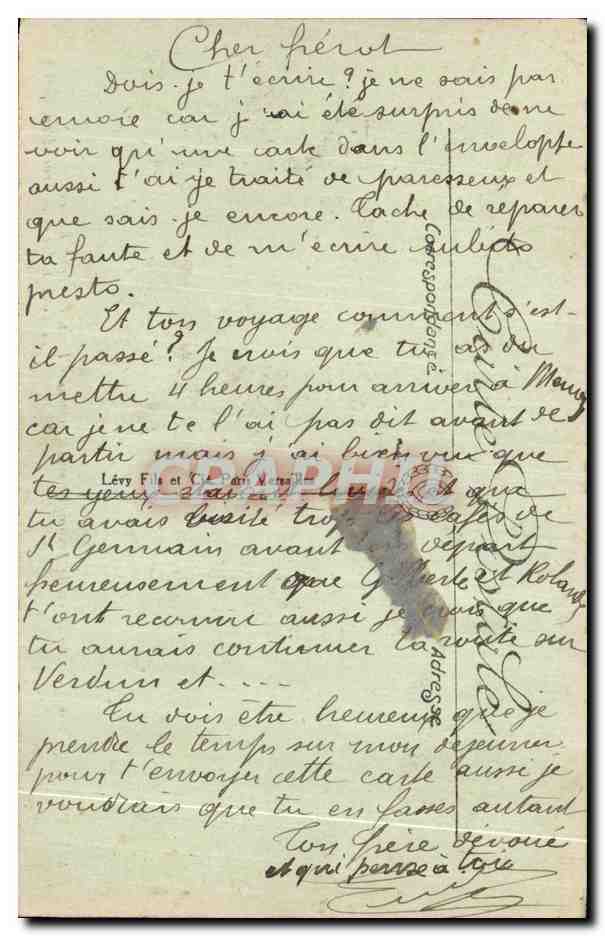 Cher frérot
Dois-je t'écrire? je ne sais pas
encore car j'ai été surpris de ne
voir qu'une carte dans l'enveloppe
aussi t'ai je traité de paresseux et
que sais-je encore. Tache de réparer
ta faute et de m'écrire subito
presto.
Et ton voyage comment s'est-
il passé? Je crois que tu as du
mettre 4 heures pour arriver à
car je ne te l'ai pas dit avant de
partir mais j'ai bien vu que
tes yeux et que
tu avais visité trop de cafés de
St Germain avant ton départ
heureusement que Gilberte et Roland
t'ont reconnu aussi je crois que
tu aurais continuer la route sur
Verdun et ....
Tu dois être heureux que je
prendre le temps sur mon déjeuner
pour t'envoyer cette carte aussi je
voudrais que tu en fasses autant
Ton frère dévoué
et qui pense à toi
Lévy Fils et Cie, Paris Versailles
Carte Postale
Correspondance
Adresse